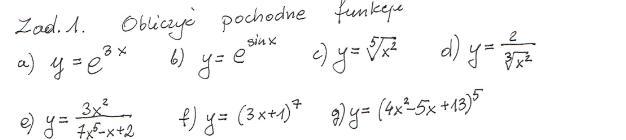 Zad. 1. Obliczyć pochodne funkcji
a) y = e^{3x} b) y = e^{sin x} c) y = \sqrt[5]{x^2} d) y = \frac{2}{\sqrt[3]{x^2}}
e) y = \frac{3x^2}{7x^5-x+2} f) y = (3x+1)^7 g) y = (4x^2-5x+13)^5